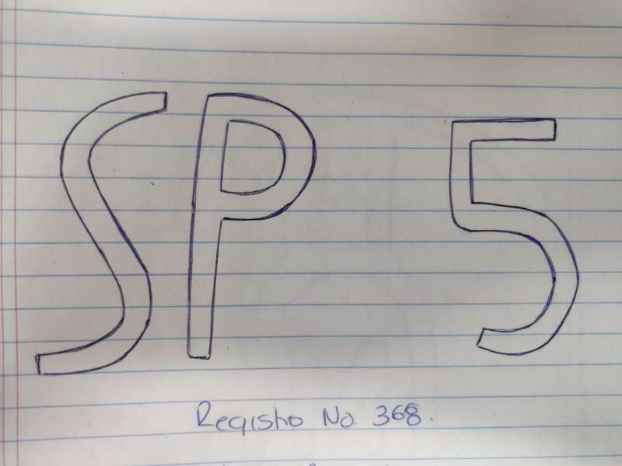 SP 5
Registro No. 368.